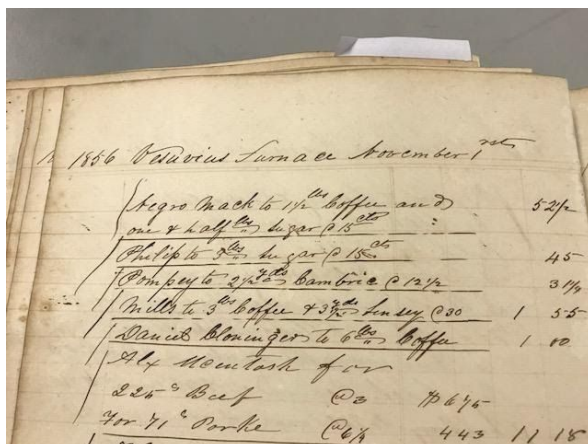 1856 Vesuvius Furnace November 1rst
Negro Mack to 1 1/2 lbs Coffee and
one & half lbs sugar @ 15 cts " 52 1/2
Philip to 3 lbs sugar @ 15 cts 45
Pompey to 2 1/2 yds Cambric @ 12 1/2 31 1/4
Mills to 3 lbs Coffee & 3 1/2 yds Linsey @ 30 1 55
Daniel Cloninger to 6 lbs Coffee 1 00
Alx McIntosh for
225 " Beef @ 3 $6 75
For 71 " Porke @ 6 1/4 4 43 11 18